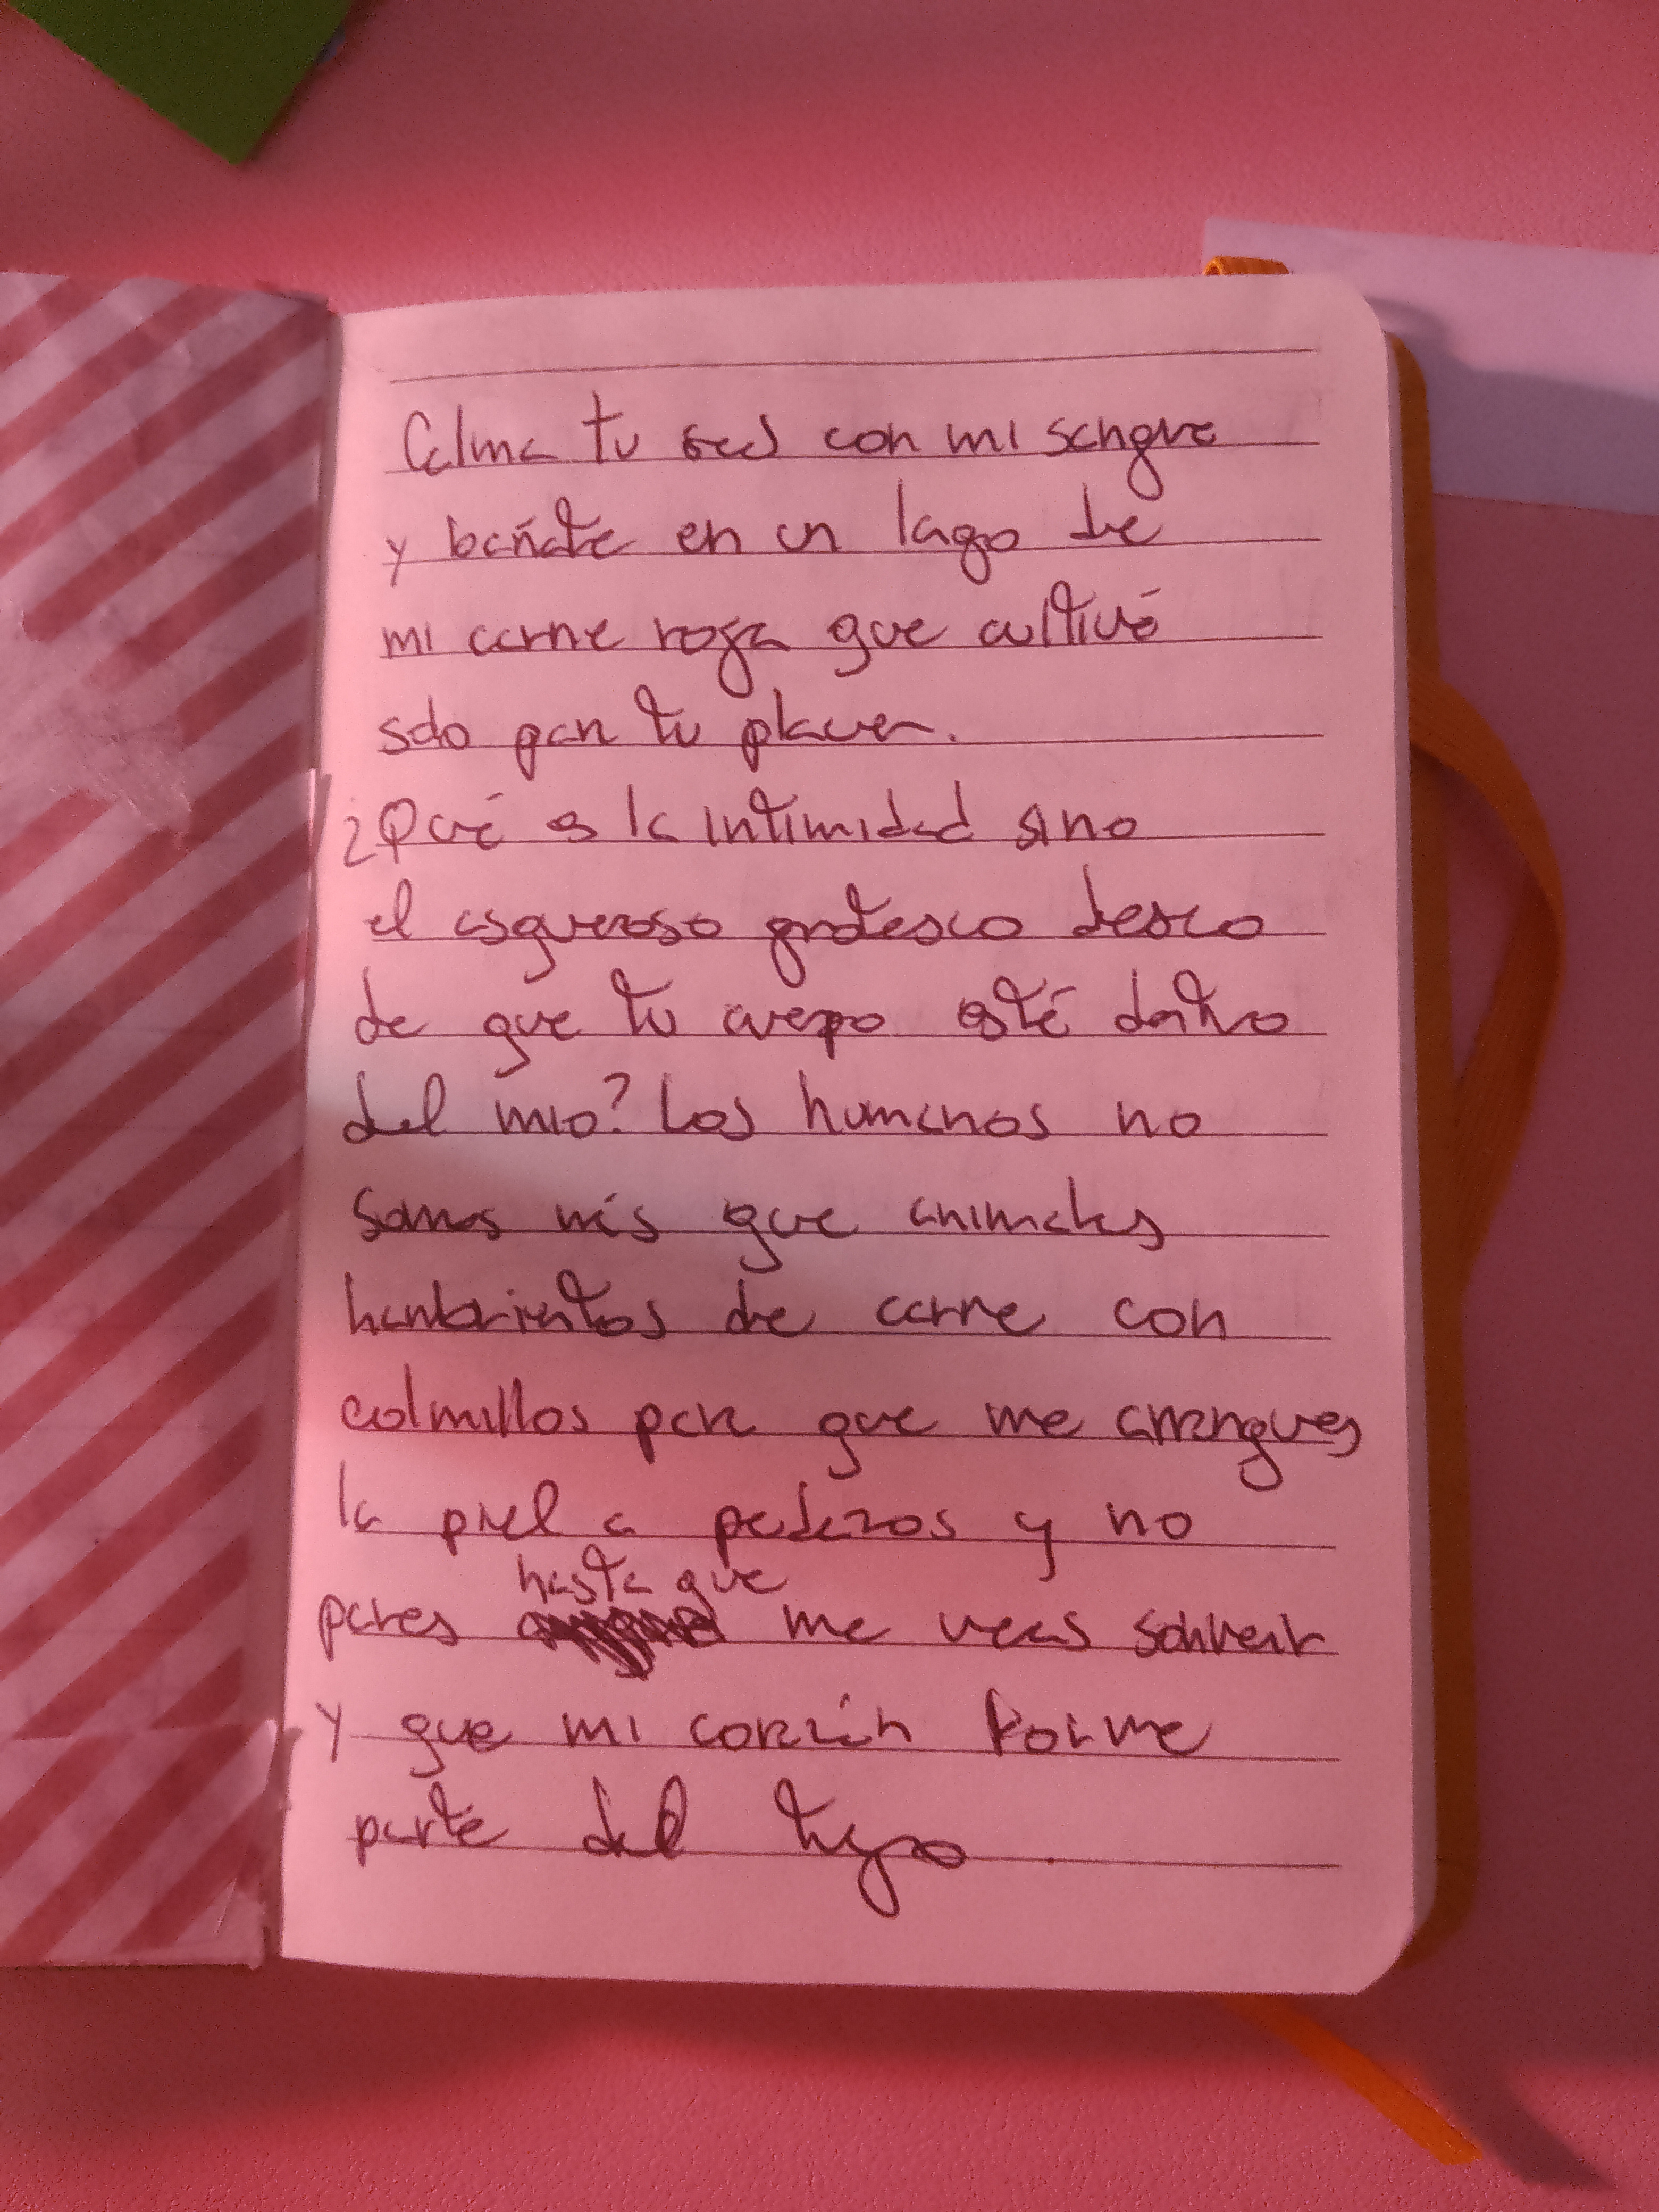 Calma tu sed con mi sangre
y bañate en un lago de
mi carne roja que cultivé
solo para tu placer.
¿Qué es la intimidad sino
el asqueroso grotesco deseo
de que tu cuerpo esté dentro
del mio? Los humanos no
somos más que animales
hambrientos de carne con
colmillos para que me arranques
la piel a pedazos y no
hasta que
pares me veas sonreir
y que mi corazón forme
parte del tuyo.